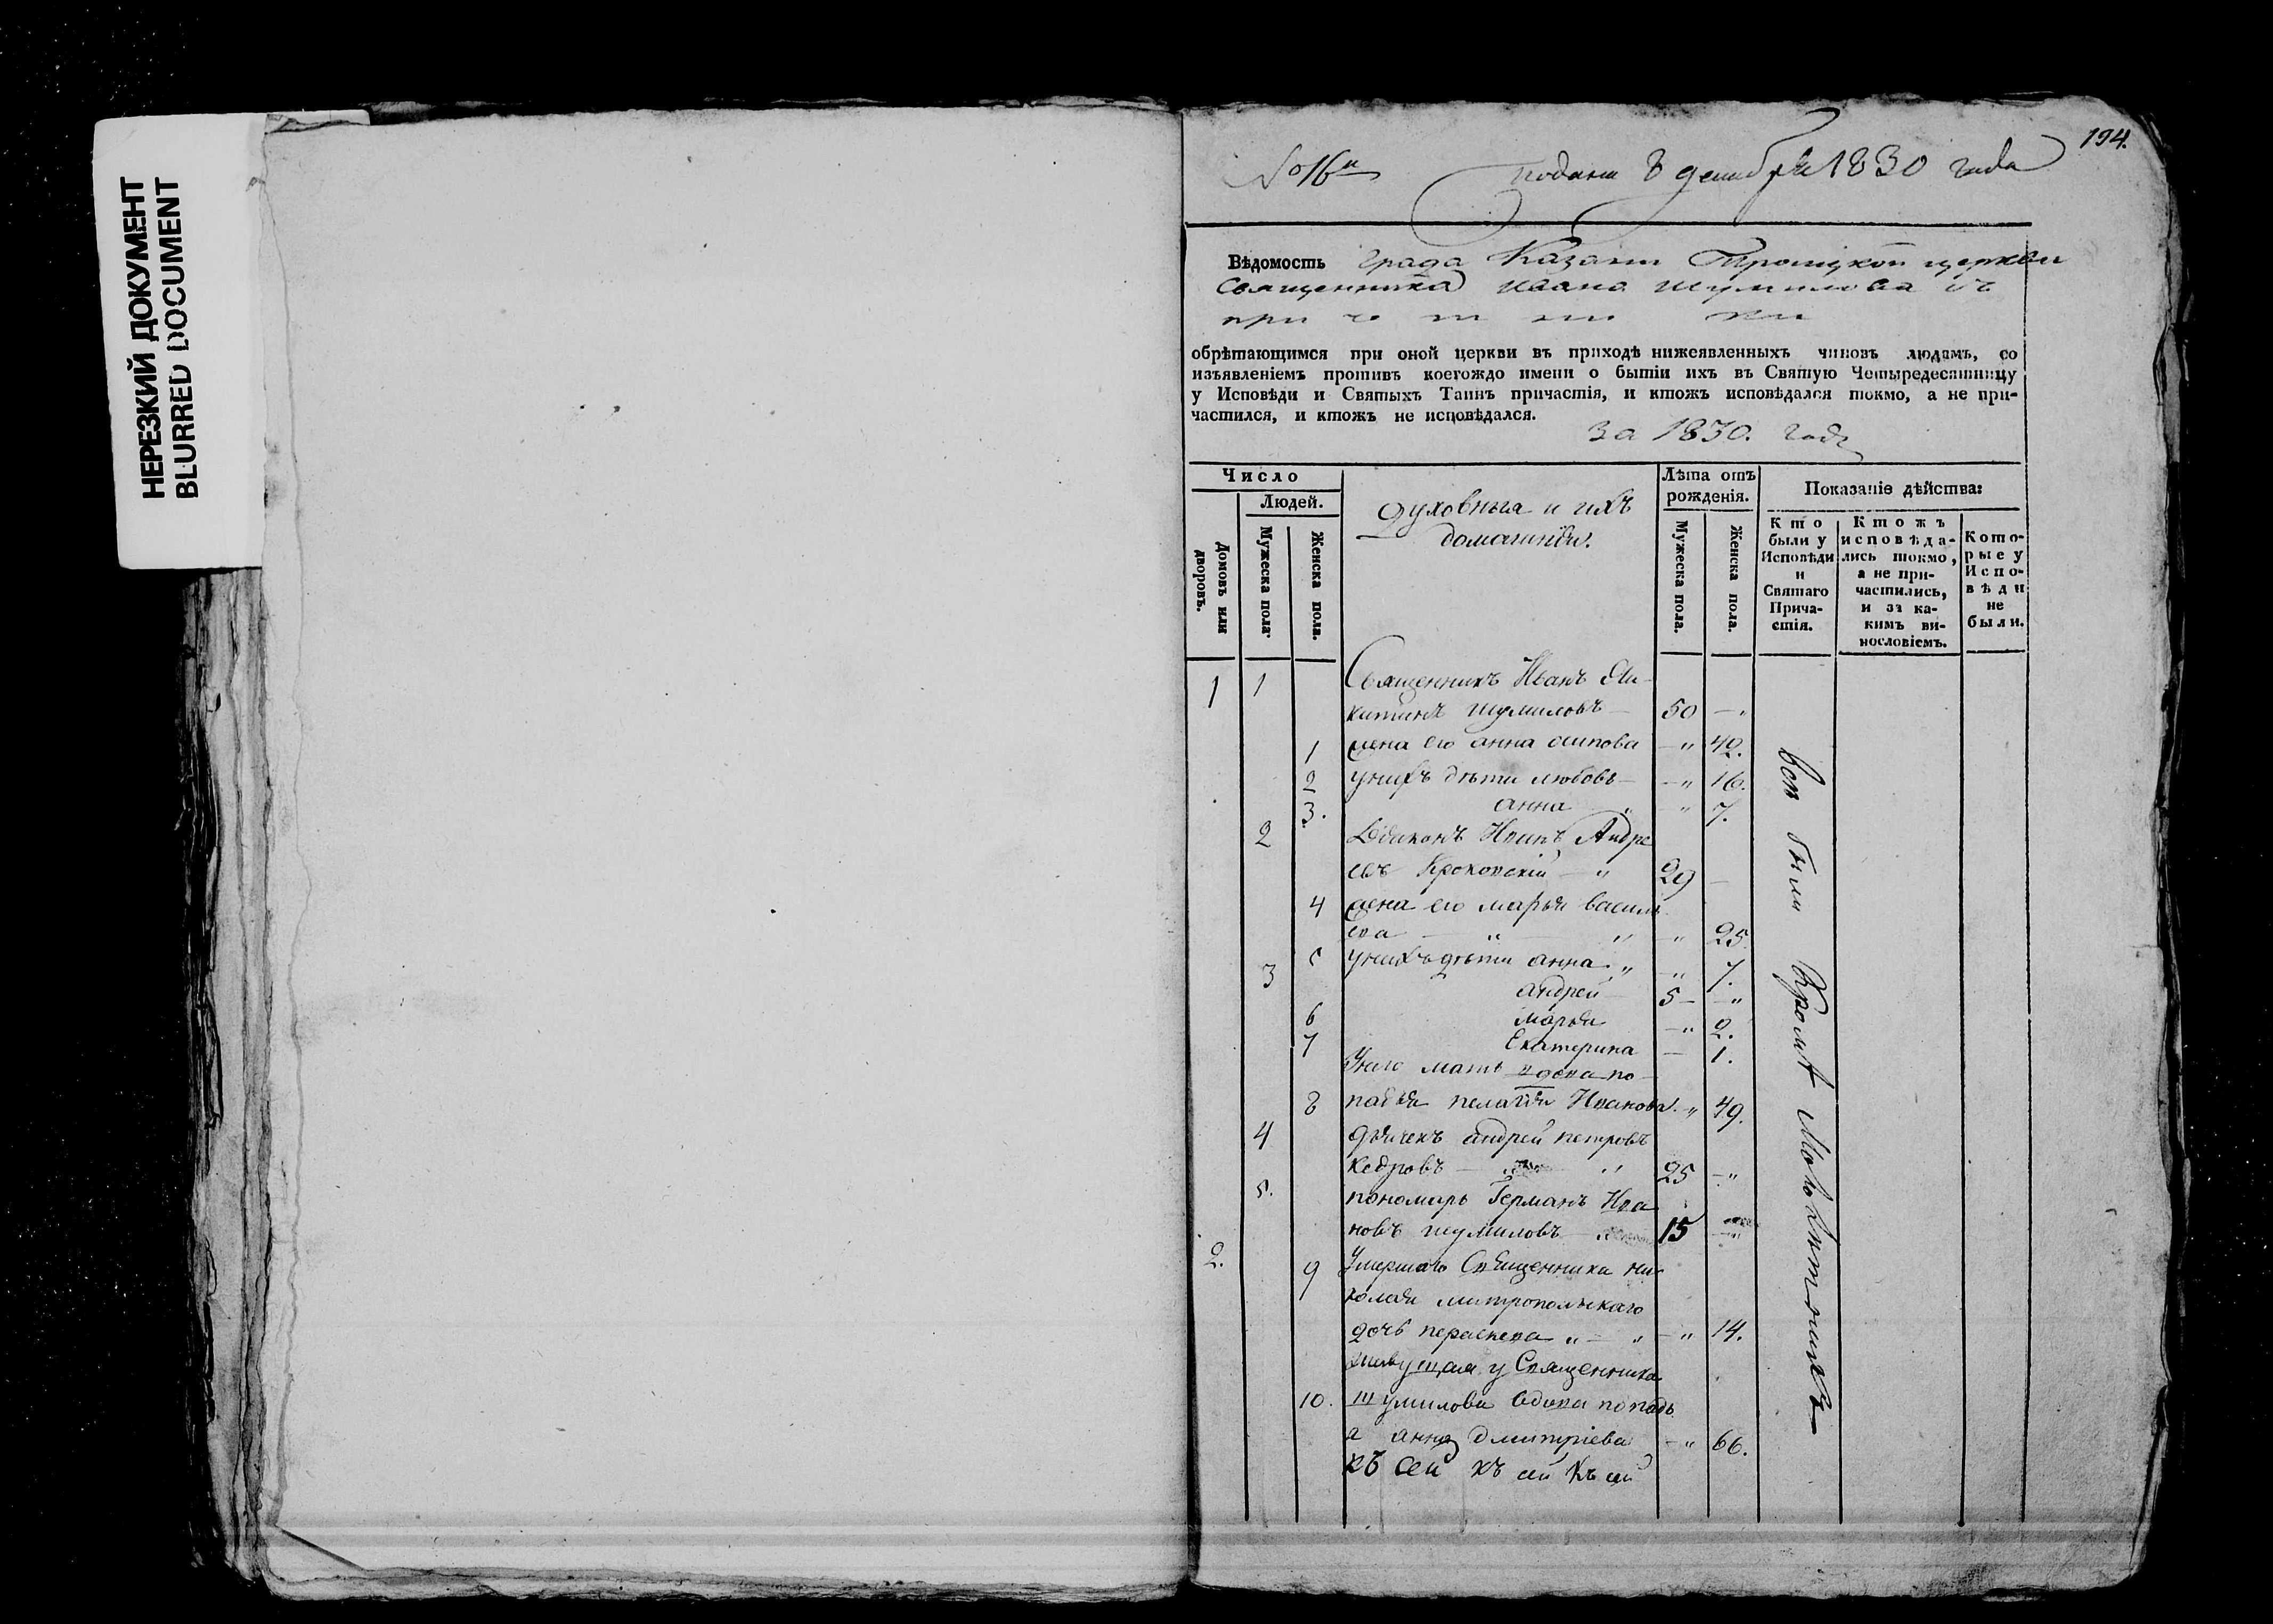 НЕРЕЗКИЙ ДОКУМЕНТ
BLURRED DOCUMENT
194.
№ 16й подана 8 декабря 1830 года
Вѣдомость града Казани Троицкой церкви
священника Ивана Шумилова съ
причетники
обрѣтающимся при оной церкви въ приходѣ нижеявленныхъ чиновъ людямъ, со
изъявленіемъ противъ коегождо имени о бытіи ихъ въ Святую Четыредесятницу
у Исповѣди и Святыхъ Таинъ причастія, и ктожъ исповѣдался токмо, а не при-
частился, и ктожъ не исповѣдался.
за 1830. годъ
Число
Людей.
Домовъ или дворовъ.
Мужеска пола.
Женска пола.
Духовныя и ихъ
домашнія.
Лѣта отъ
рожденія.
Мужеска пола.
Женска пола.
Показаніе дѣйства:
Кто
были у
Исповѣди
и
Святаго
Прича-
стія.
Ктожъ
исповѣда-
лись токмо,
а не при-
частились,
и за ка-
кимъ ви-
нословіемъ.
Кото-
рые у
Испо-
вѣди
не
были.
1 1 Священникъ Иванъ Ни-
китинъ Шумиловъ — 50 — "
1 жена его анна осипова — " 42.
2 у нихъ дѣти любовь — — " 16.
3. анна " " 7.
2 Діаконъ Иванъ Андре
евъ Кроковскій — " 29 —
4 жена его марья василь
ева — " — " " 25
5 у нихъ дѣти анна " " 7.
3 андрей — 5 — — "
6 марья — " 2.
7 Екатерина — 1.
У него мать вдова по
8 падья пелагія Иванова. " 49.
4 дьячекъ андрей петровъ
Кедровъ — " 25 — "
5. пономарь Германъ Ива
новъ шумиловъ — " 15 — "
2. 9 Умершаго Священника ни
колая митропольскаго
дочь пераскева " — " — " 14.
живущая у Священника
10. Шумилова вдова попадь
я анна дмитріева — " 66.
къ сей къ сей къ сей
всѣ были Кромѣ Малолѣтныхъ